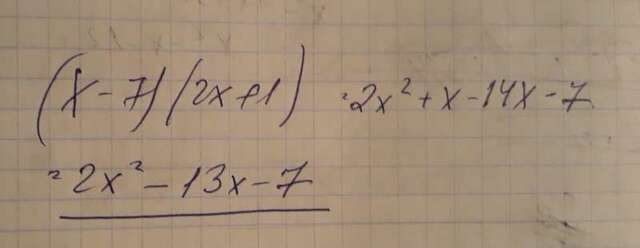 (x-7)(2x+1) = 2x² + x - 14x - 7
= 2x² - 13x - 7